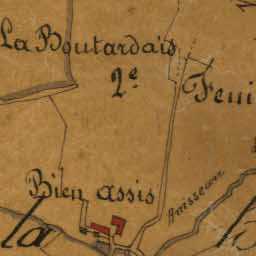 La Boutardais
2e
Feui
Bien assis
Ruisseau
la